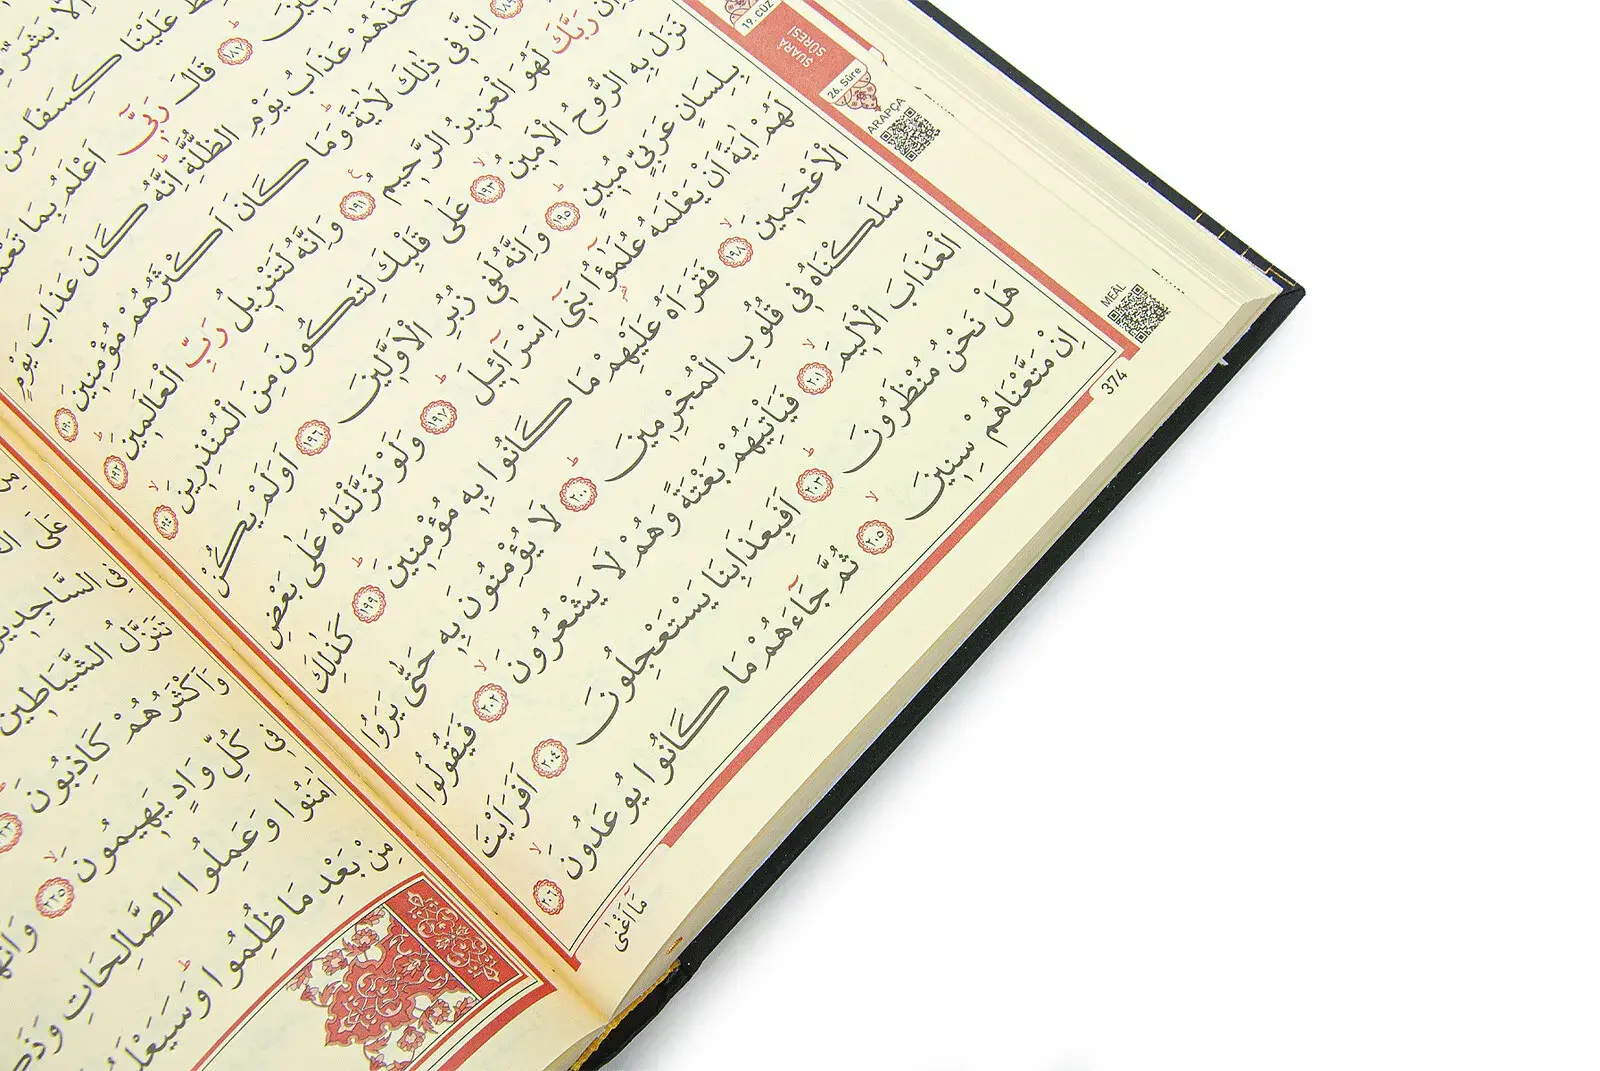 بَشَرٌ
عَلَيْنَا كِسَفًا مِنَ
﴿١٨٧﴾ قَالَ رَبِّٓي اَعْلَمُ بِمَا
عَذَابُ يَوْمِ الظُّلَّةِ اِنَّهُ كَانَ عَذَابَ يَوْمٍ
﴿١٨٩﴾ اِنَّ فِي ذٰلِكَ لَاٰيَةً وَمَا كَانَ اَكْثَرُهُمْ مُؤْمِنِينَ ﴿١٩٠﴾
رَبَّكَ لَهُوَ الْعَزِيزُ الرَّحِيمُ ﴿١٩١﴾ وَاِنَّهُ لَتَنْزِيلُ رَبِّ الْعَالَمِينَ ﴿١٩٢﴾
نَزَلَ بِهِ الرُّوحُ الْاَمِينُ ﴿١٩٣﴾ عَلٰى قَلْبِكَ لِتَكُونَ مِنَ الْمُنْذِرِينَ ﴿١٩٤﴾
بِلِسَانٍ عَرَبِيٍّ مُبِينٍ ﴿١٩٥﴾ وَاِنَّهُ لَفِي زُبُرِ الْاَوَّلِينَ ﴿١٩٦﴾ اَوَلَمْ يَكُنْ
لَهُمْ اٰيَةً اَنْ يَعْلَمَهُ عُلَمٰٓؤُا بَنِٓي اِسْرَٓائِيلَ ﴿١٩٧﴾ وَلَوْ نَزَّلْنَاهُ عَلٰى بَعْضِ
الْاَعْجَمِينَ ﴿١٩٨﴾ فَقَرَاَهُ عَلَيْهِمْ مَا كَانُوا بِهِ مُؤْمِنِينَ ﴿١٩٩﴾ كَذٰلِكَ
سَلَكْنَاهُ فِي قُلُوبِ الْمُجْرِمِينَ ﴿٢٠٠﴾ لَا يُؤْمِنُونَ بِهِ حَتّٰى يَرَوُا
الْعَذَابَ الْاَلِيمَ ﴿٢٠١﴾ فَيَأْتِيَهُمْ بَغْتَةً وَهُمْ لَا يَشْعُرُونَ ﴿٢٠٢﴾ فَيَقُولُوا
هَلْ نَحْنُ مُنْظَرُونَ ﴿٢٠٣﴾ اَفَبِعَذَابِنَا يَسْتَعْجِلُونَ ﴿٢٠٤﴾ اَفَرَاَيْتَ
اِنْ مَتَّعْنَاهُمْ سِنِينَ ﴿٢٠٥﴾ ثُمَّ جَٓاءَهُمْ مَا كَانُوا يُوعَدُونَ ﴿٢٠٦﴾
مَٓا اَغْنٰى
19. CÜZ
ŞUARÂ SÛRESİ
26. Sûre
ARAPÇA
MEÂL
374
فِي السَّاجِدِينَ
تَنَزَّلُ الشَّيَاطِينُ
وَاَكْثَرُهُمْ كَاذِبُونَ
فِي كُلِّ وَادٍ يَهِيمُونَ ﴿٢٢٥﴾
اٰمَنُوا وَعَمِلُوا الصَّالِحَاتِ
مِنْ بَعْدِ مَا ظُلِمُوا